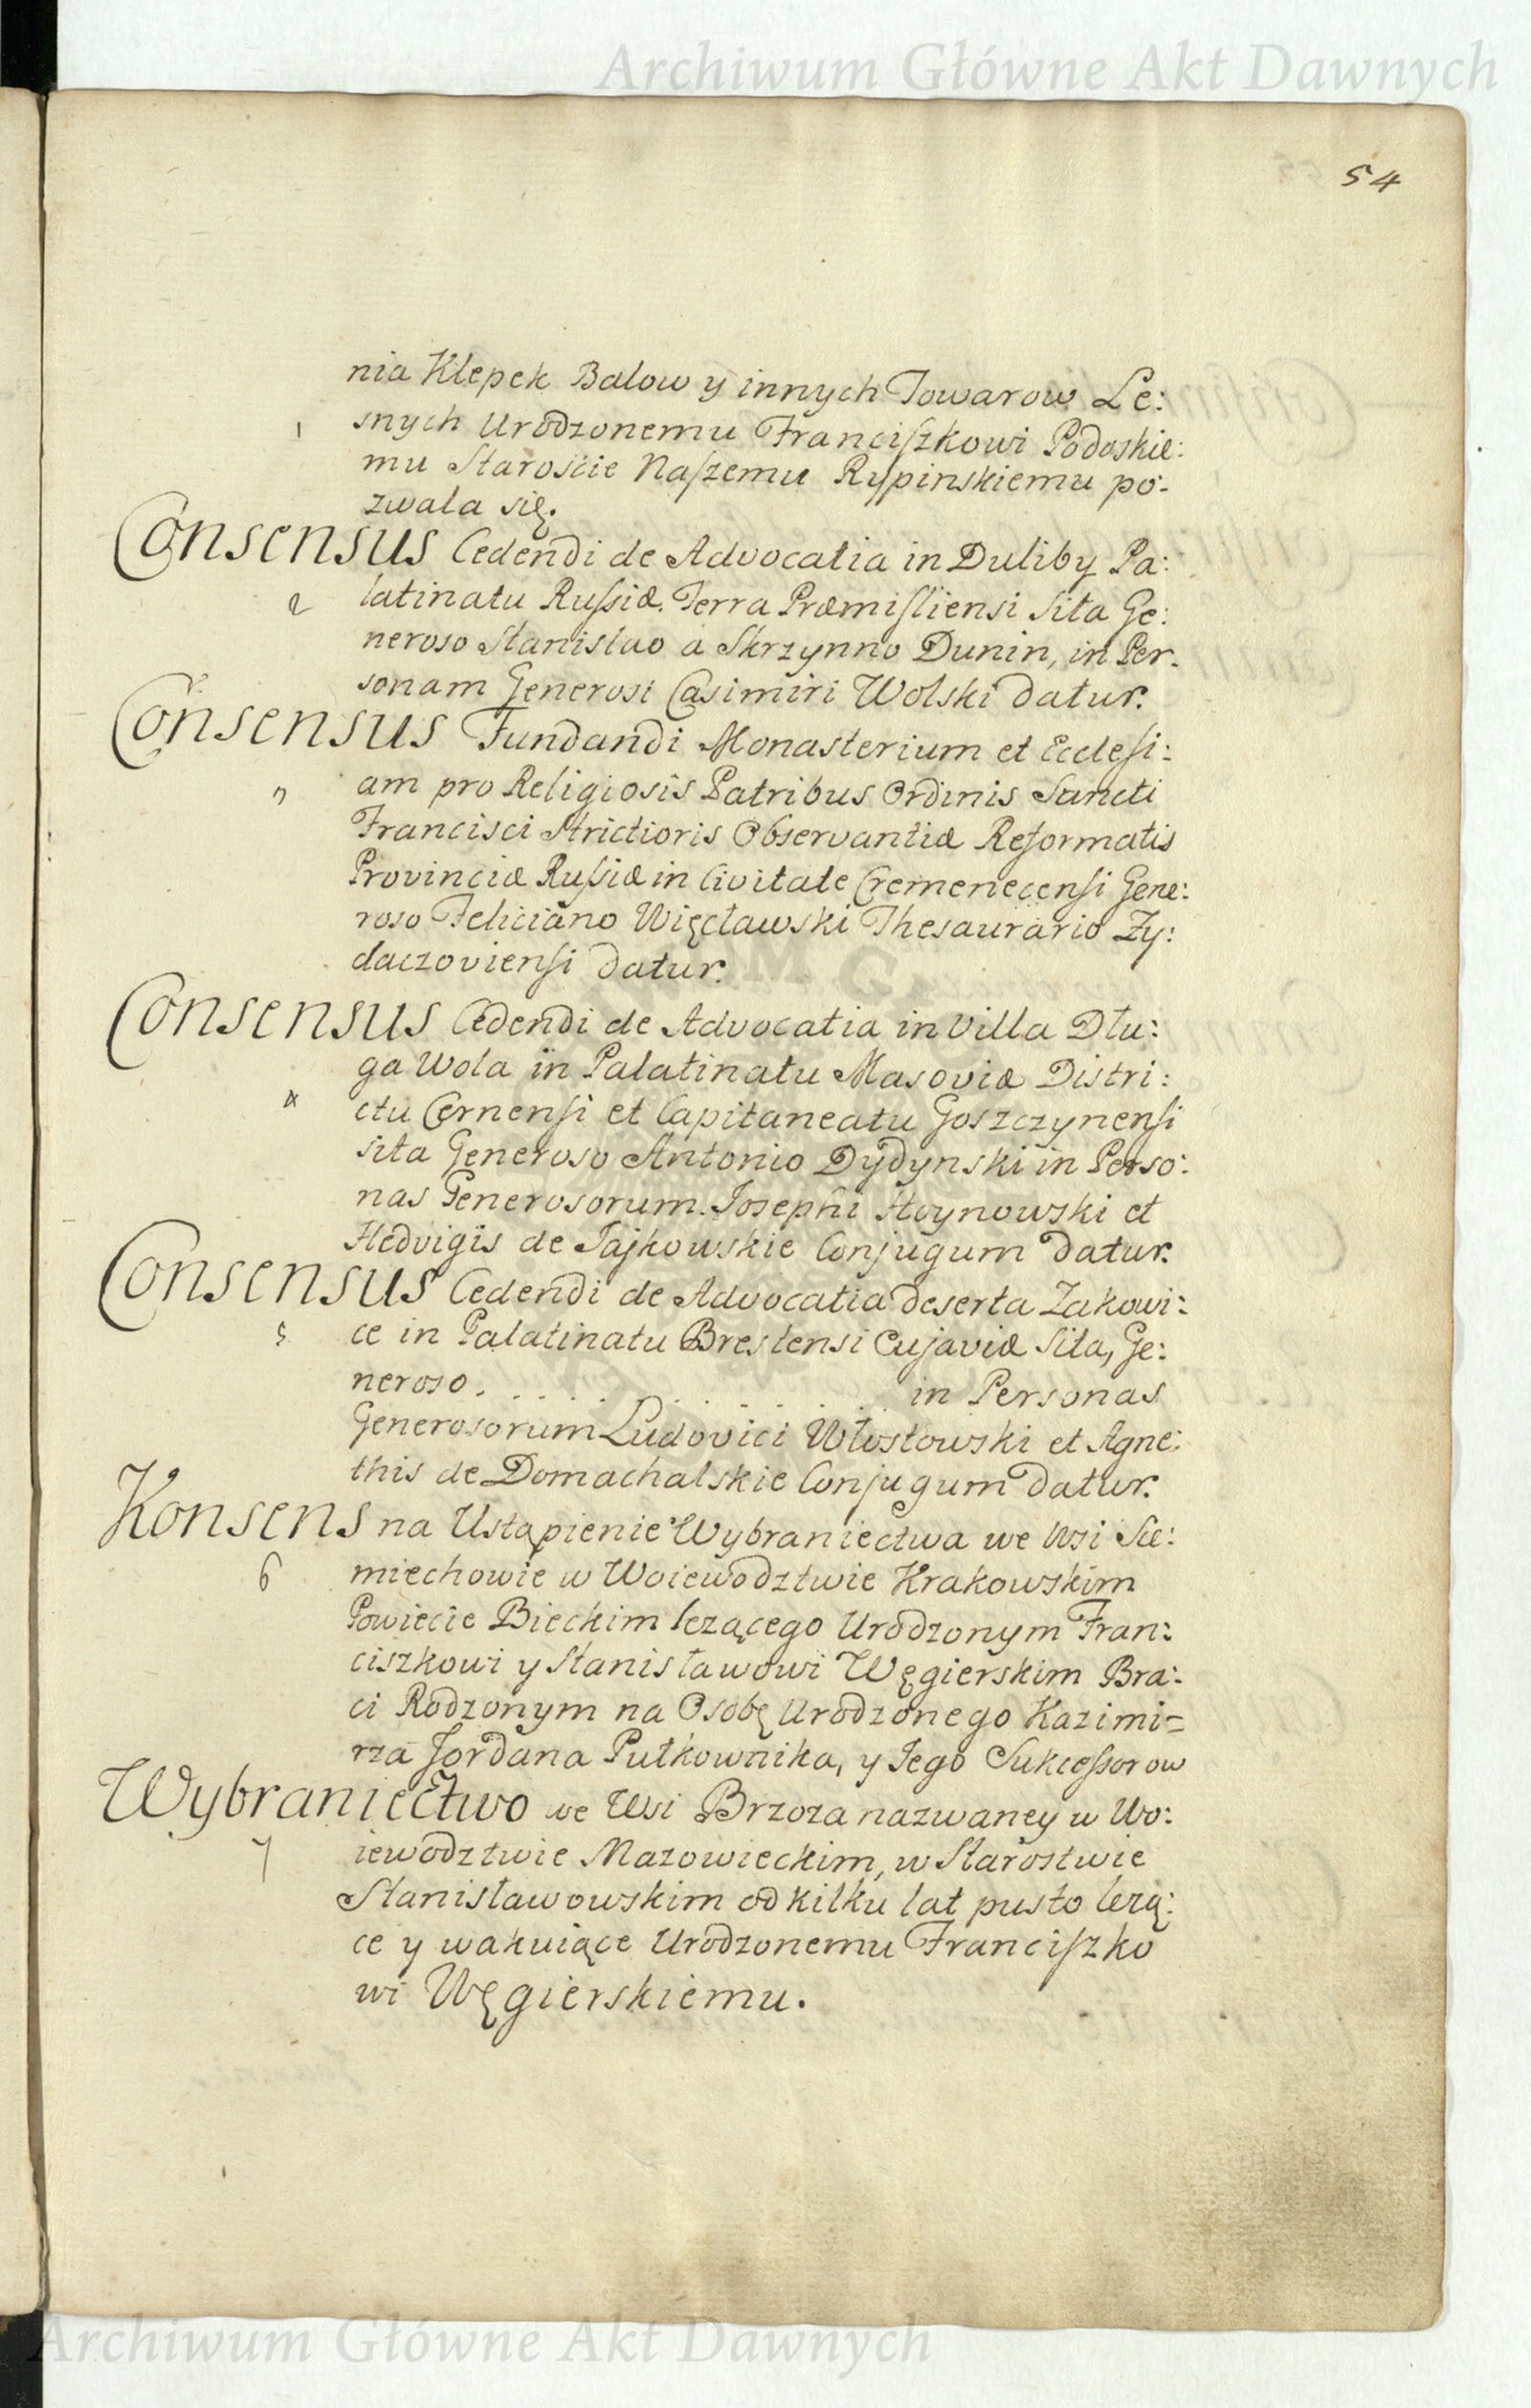 Archiwum Główne Akt Dawnych
54
nia Klepek Balow y innych Towarow Le:
1 snych Urodzonemu Franciszkowi Podoskie:
mu Staroście Naszemu Rypinskiemu po-
zwala się.
Consensus Cedendi de Advocatia in Duliby Pa:
2 latinatu Russiæ Terra Præmisliensi sita Ge:
neroso Stanislao a Skrzynno Dunin, in Per-
sonam Generosi Casimiri Wolski datur.
Consensus Fundandi Monasterium et Ecclesi:
3 am pro Religiosis Patribus Ordinis Sancti
Francisci Strictioris Observantiæ Reformatis
Provinciæ Russiæ in Civitate Cremenecensi Gene:
roso Feliciano Więcławski Thesaurario Zy:
daczoviensi datur.
Consensus Cedendi de Advocatia in Villa Dłu:
ga Wola in Palatinatu Masoviæ Distri:
4 ctu Cernensi et Capitaneatu Goszczynensi
sita Generoso Antonio Dydynski in Perso:
nas Generosorum Josephi Stoynowski et
Hedvigis de Jajkowskie Conjugum datur.
Consensus Cedendi de Advocatia deserta Zakowi:
5 ce in Palatinatu Brestensi Cujaviæ sita, Ge:
neroso. . . . . . . . . . in Personas
Generosorum Ludovici Włostowski et Agne:
this de Domachalskie Conjugum datur.
Konsens na Ustąpienie Wybraniectwa we Wsi Sie:
6 miechowie w Woiewodztwie Krakowskim
Powiecie Bieckim lezącego Urodzonym Fran:
ciszkowi y Stanisławowi Węgierskim Bra:
ci Rodzonym na Osobę Urodzonego Kazimi=
rza Jordana Pułkownika, y Jego Sukcessorow
Wybraniectwo we Wsi Brzoza nazwaney w Wo:
7 iewodztwie Mazowieckim, w Starostwie
Stanisławowskim od kilku lat pusto lezą:
ce y wakuiące Urodzonemu Franciszko
wi Węgierskiemu.
Archiwum Główne Akt Dawnych